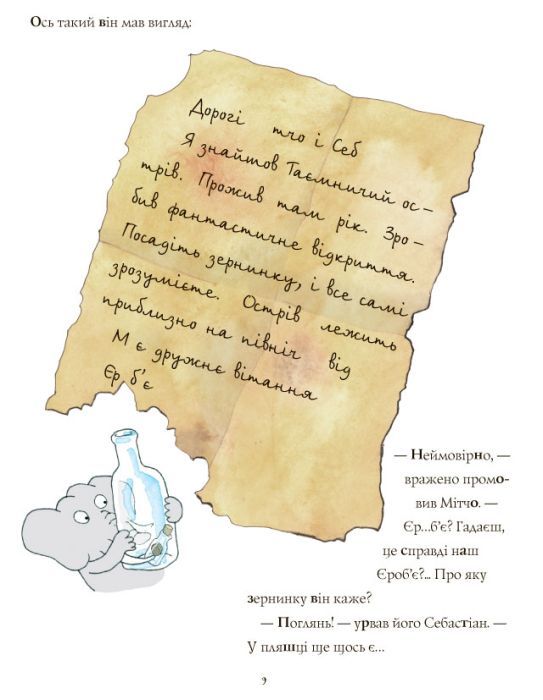 Ось такий він мав вигляд:
Дорогі тчо і Себ
Я знайшов Таємничий ос–
трів. Прожив там рік. Зро–
бив фантастичне відкриття.
Посадіть зернинку, і все самі
зрозумієте. Острів лежить
приблизно на північ від
М є дружнє вітання
Єр б'є
— Неймовірно, —
вражено промо-
вив Мітчо. —
Єр...б'є? Гадаєш,
це справді наш
Єроб'є?.. Про яку
зернинку він каже?
— Поглянь! — урвав його Себастіан. —
У пляшці ще щось є...
9